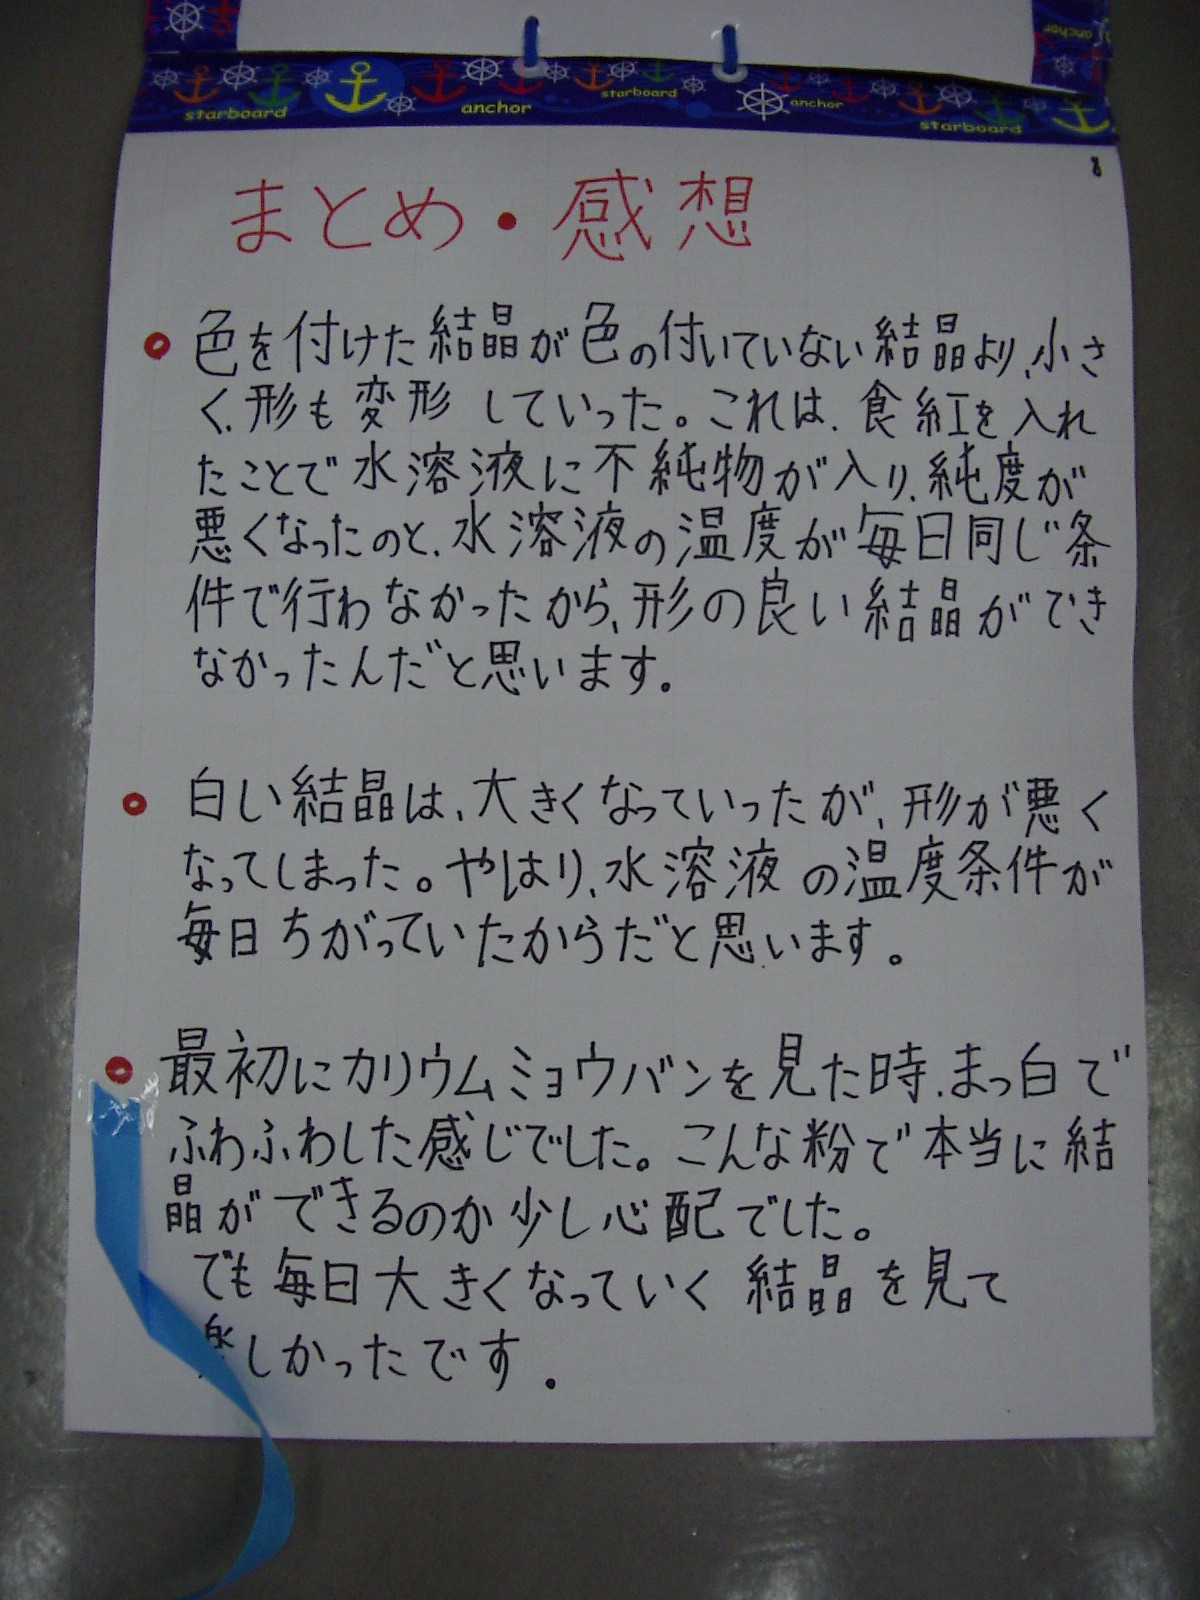 starboard anchor starboard anchor starboard
anchor
8
まとめ・感想
色を付けた結晶が色の付いていない結晶より、小さ
く、形も変形していった。これは、食紅を入れ
たことで水溶液に不純物が入り、純度が
悪くなったのと、水溶液の温度が毎日同じ条
件で行わなかったから、形の良い結晶ができ
なかったんだと思います。
白い結晶は、大きくなっていったが、形が悪く
なってしまった。やはり、水溶液の温度条件が
毎日ちがっていたからだと思います。
最初にカリウムミョウバンを見た時、まっ白で
ふわふわした感じでした。こんな粉で本当に結
晶ができるのか少し心配でした。
でも毎日大きくなっていく結晶を見て
楽しかったです.